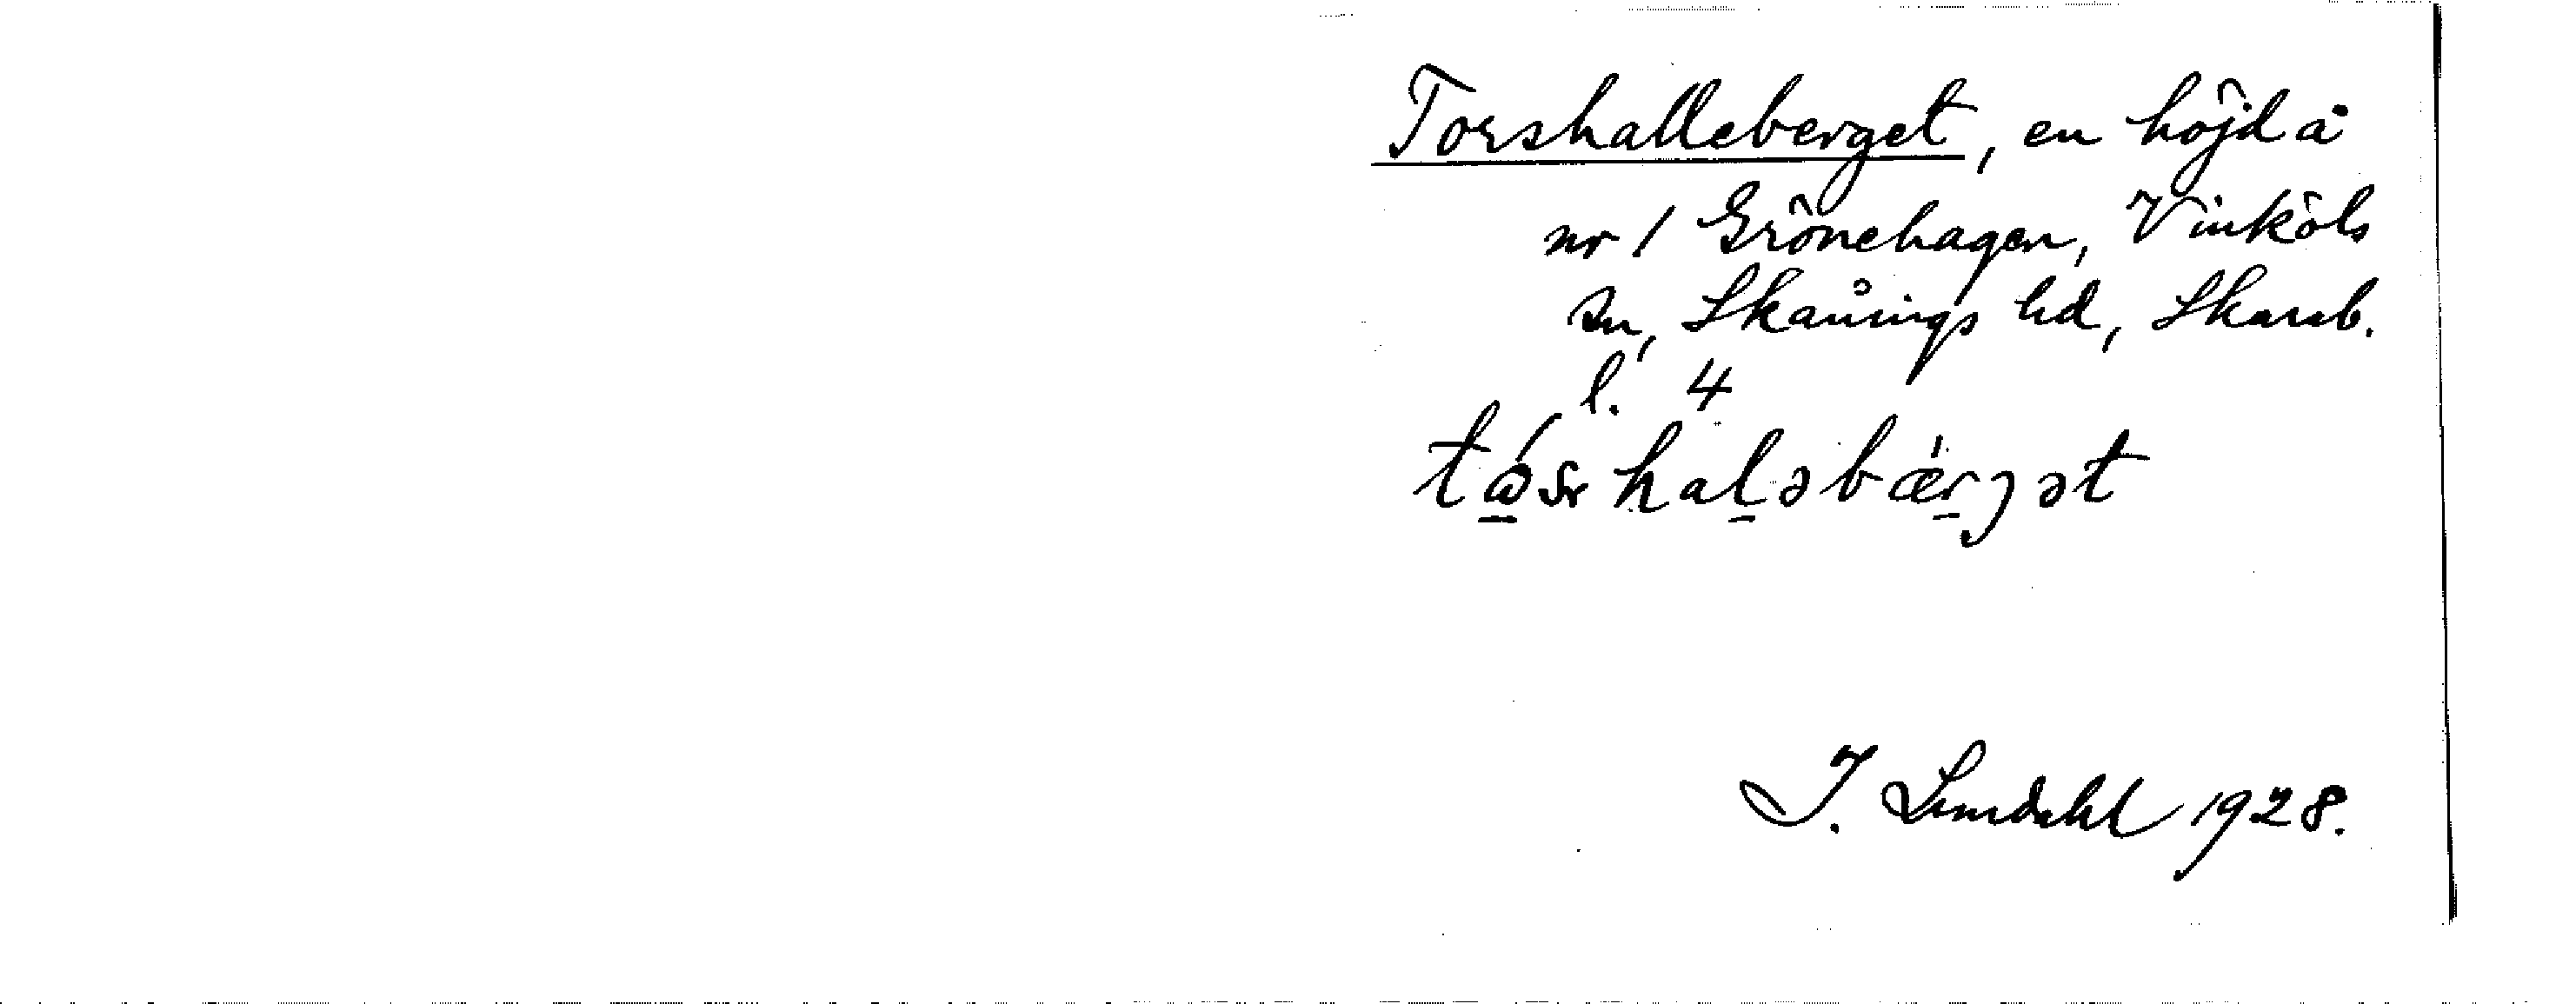 Torshalleberget, en höjd å
nr 1 Grönehagen, Vinköls
sn, Skånings hd, Skarab.
l. 4
I. Lundahl 1928.